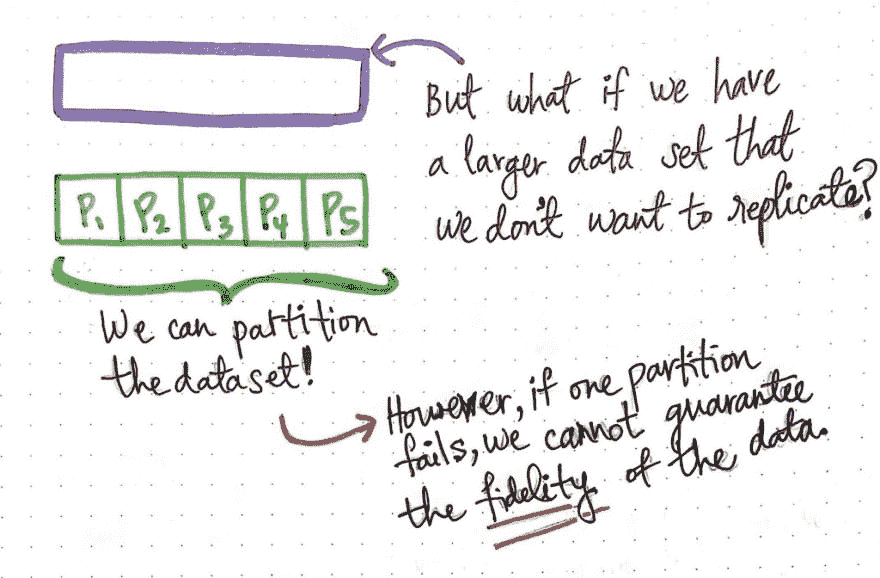 But what if we have
a larger data set that
we don't want to replicate?
P1 P2 P3 P4 P5
We can partition
the dataset!
However, if one partition
fails, we cannot guarantee
the fidelity of the data.